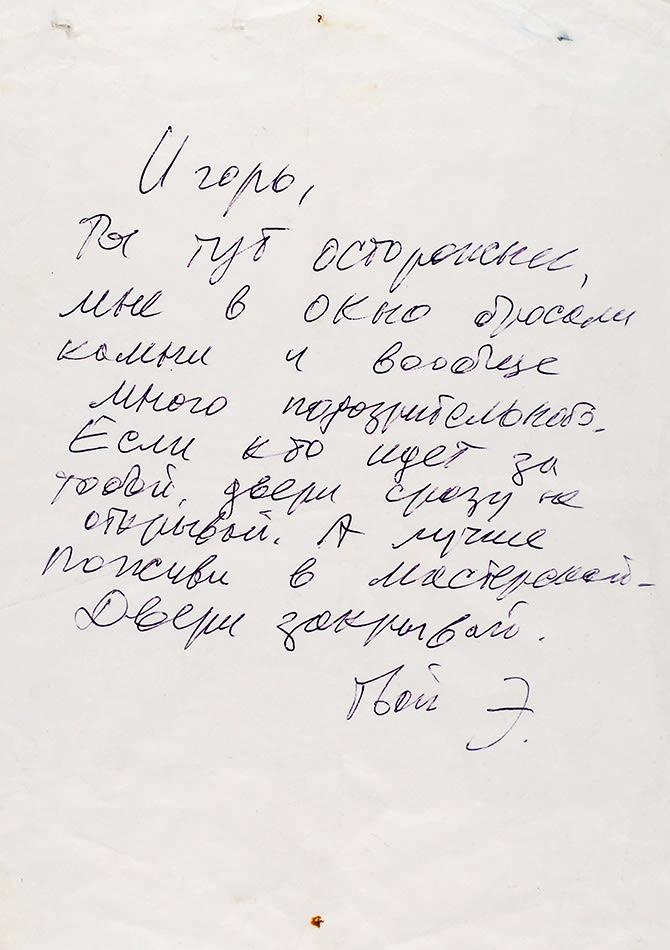 Игорь,
Ты тут осторожнее,
мне в окно бросали
камни и вообще
много подозрительного.
Если кто идет за
тобой, двери сразу не
открывай. А лучше
поживи в мастерской –
Двери закрывай.
Твой Э.